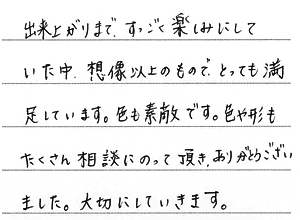 出来上がりまで、すっごく楽しみにして
いた中、想像以上のもので、とっても満
足しています。色も素敵です。色や形も
たくさん相談にのって頂き、ありがとうござい
ました。大切にしていきます。